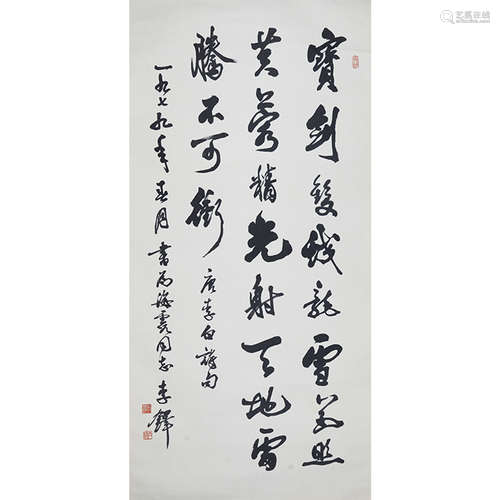 寶劍雙蛟龍雪花照
芙蓉精光射天地雷
騰不可衝
唐李白詩句
一九七九年春月書為海同志李鐸
艺狐在线